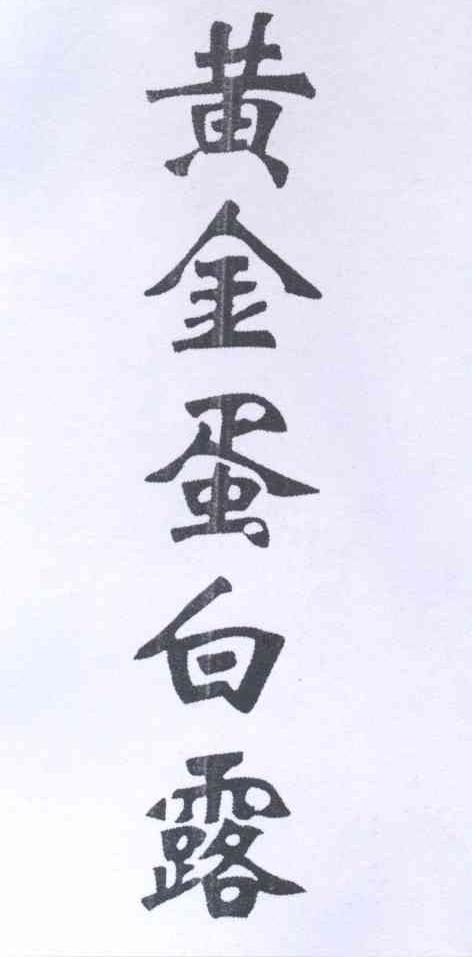 黄金蛋白露